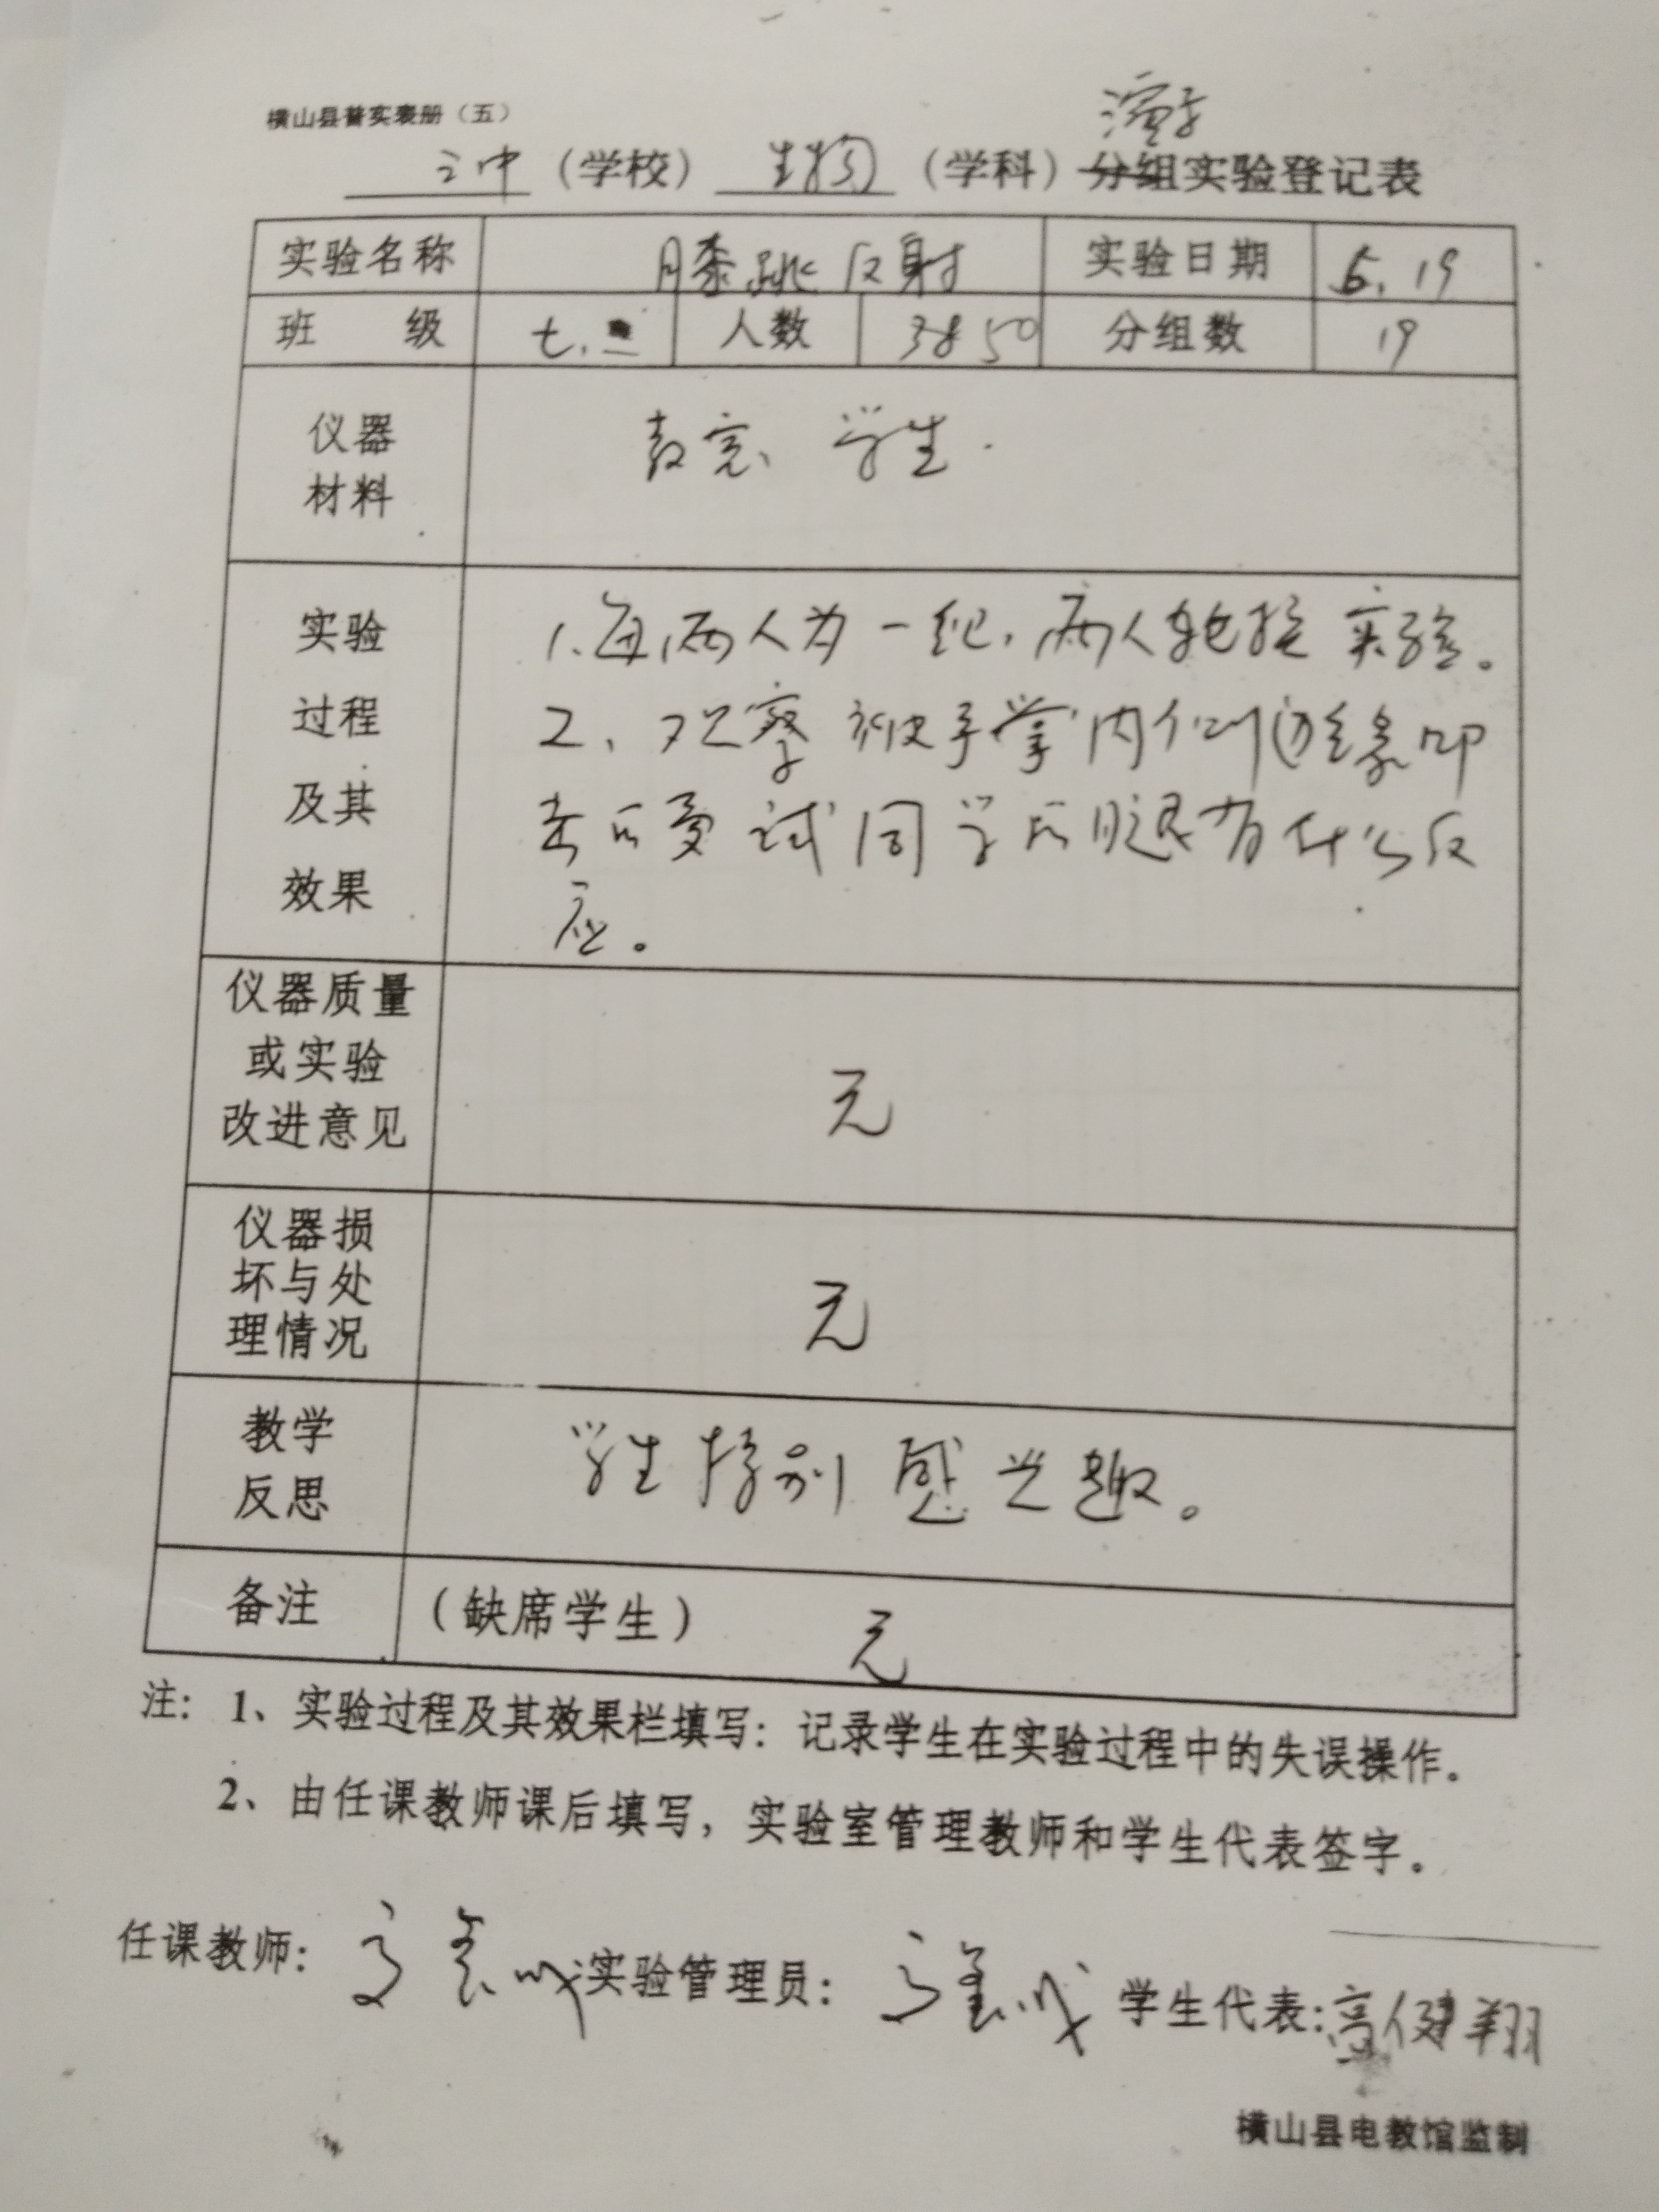 横山县普实表册（五）
演示
三中（学校）生物（学科）分组实验登记表
实验名称 膝跳反射 实验日期 5.19
班 级 七.二 人数 38 50 分组数 19
仪器 教室、学生.
材料
实验 1.每两人为一组,两人轮换实验。
过程 2、观察被手掌内侧边缘叩
及其 击后受试同学后腿有什么反
效果 应。
仪器质量
或实验
改进意见 无
仪器损
坏与处
理情况 无
教学 学生特别感兴趣。
反思
备注 （缺席学生） 无
注：1、实验过程及其效果栏填写：记录学生在实验过程中的失误操作。
2、由任课教师课后填写，实验室管理教师和学生代表签字。
任课教师： 实验管理员： 学生代表:高健翔
横山县电教馆监制